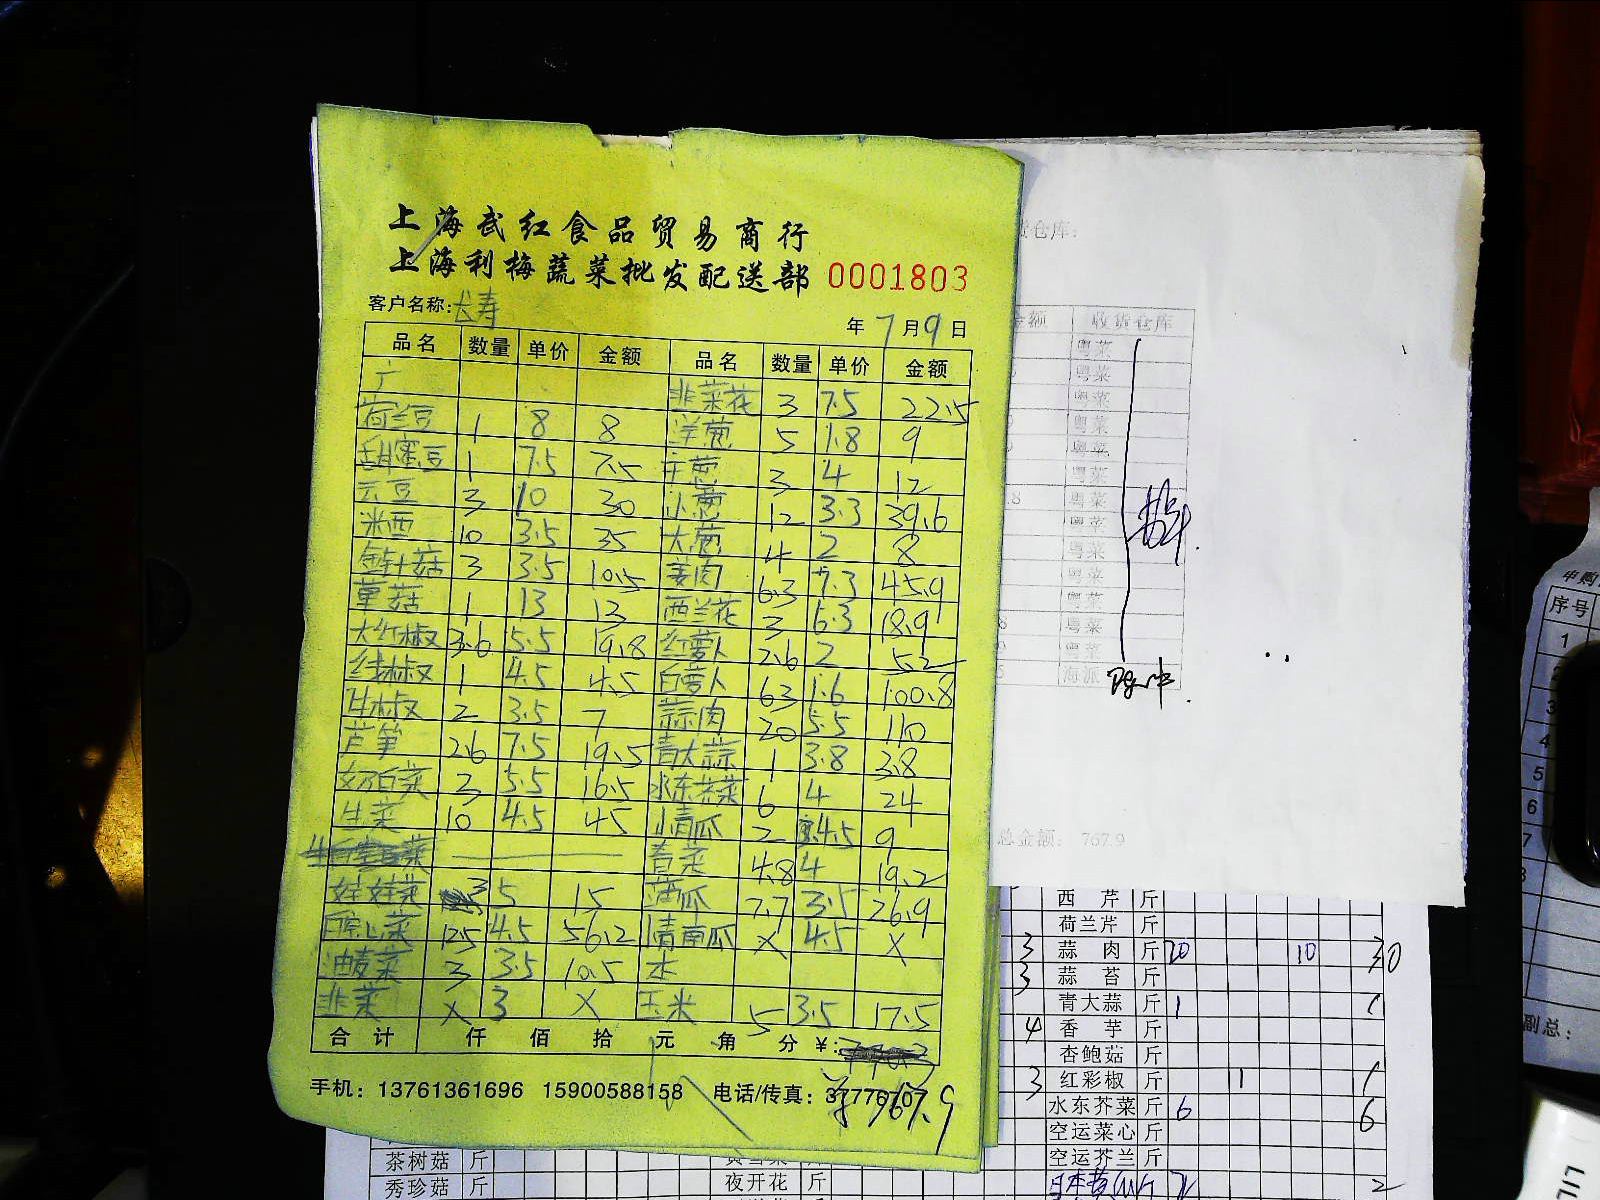 上海武红食品贸易商行
上海利梅蔬菜批发配送部 0001803
客户名称:长寿
年7月9日
品名 数量 单价 金额 品名 数量 单价 金额
广 韭菜花 3 7.5 22.5
荷兰豆 1 8 8 洋葱 5 1.8 9
甜蜜豆 1 7.5 7.5 干葱 3 4 12
云豆 3 10 30 小葱 12 3.3 39.6
米西 10 3.5 35 大葱 4 2 8
金针菇 3 3.5 10.5 姜肉 6.3 7.3 45.9
草菇 1 13 13 西兰花 3 6.3 18.9
大红椒 3.6 5.5 19.8 红萝卜 2.6 2 5.2
线椒 1 4.5 4.5 白萝卜 63 1.6 100.8
牛椒 2 3.5 7 蒜肉 20 5.5 110
芦笋 2.6 7.5 19.5 青大蒜 1 3.8 3.8
奶白菜 3 5.5 16.5 水东芥菜 6 4 24
生菜 10 4.5 45 小青瓜 2 4.5 9
4.8 4 19.2
娃娃菜 3 5 15 7.7 3.5 26.9
12.5 4.5 56.2 南瓜 X 4.5 X
油麦菜 3 3.5 10.5 水
韭菜 X 3 X 玉米 5 3.5 17.5
合计 仟 佰 拾 元 角 分 ¥:
¥767.9
手机:13761361696 15900588158 电话/传真:
仓库:
金额 收货仓库
粤菜
粤菜
粤菜
粤菜
粤菜
粤菜
粤菜
粤菜
粤菜
粤菜
粤菜
粤菜
粤菜
海派
总金额: 767.9
西芹 斤
荷兰芹 斤
3 蒜肉 斤 20 10 30
3 蒜苔 斤
青大蒜 斤 1 1
4 香芋 斤
杏鲍菇 斤
3 红彩椒 斤 1 1
水东芥菜 斤 6 6
空运菜心 斤
空运芥兰 斤
茶树菇 斤
秀珍菇 斤 夜开花 斤
申购
序号
1
2
3
4
5
6
7
8
副总: